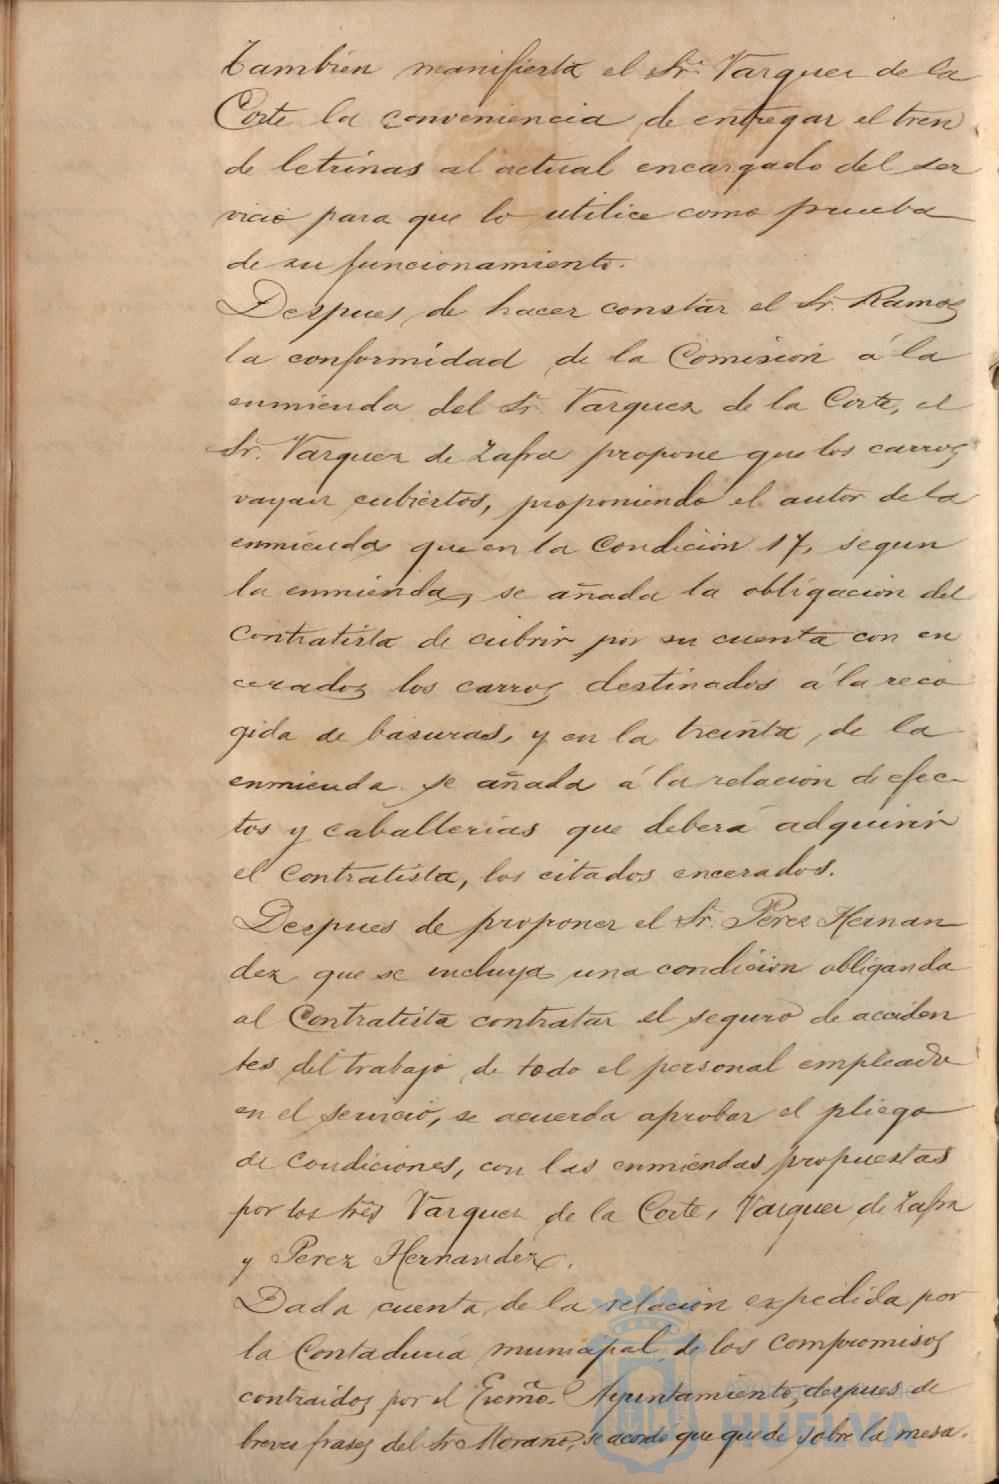 Tambien manifiesta el Sr. Vazquez de la
Corte la conveniencia de entregar el tren
de letrinas al actual encargado del ser
vicio para que lo utilice como prueba
de su funcionamiento.
Despues de hacer constar el Sr. Ramos
la conformidad de la Comision á la
enmienda del Sr. Vazquez de la Corte, el
Sr. Vazquez de Zafra propone que los carros
vayan cubiertos, proponiendo el autor de la
enmienda que en la condicion 17, segun
la enmienda, se añada la obligacion del
contratista de cubrir por su cuenta con en
cerados los carros destinados á la reco
gida de basuras, y en la treinta, de la
enmienda se añada á la relacion de efec-
tos y caballerias que deberá adquirir
el contratista, los citados encerados.
Despues de proponer el Sr. Perez Hernan
dez que se incluya una condicion obligando
al Contratista contratar el seguro de acciden
tes del trabajo de todo el personal empleado
en el servicio, se acuerda aprobar el pliego
de condiciones, con las enmiendas propuestas
por los Sres Vazquez de la Corte, Vazquez de Zafra
y Perez Hernandez.
Dada cuenta de la relacion expedida por
la Contaduria municipal de los compromisos
contraidos por el Excmo. Ayuntamiento, despues de
breves frases del Sr. Morano, se acordó que quede sobre la mesa.
HUELVA